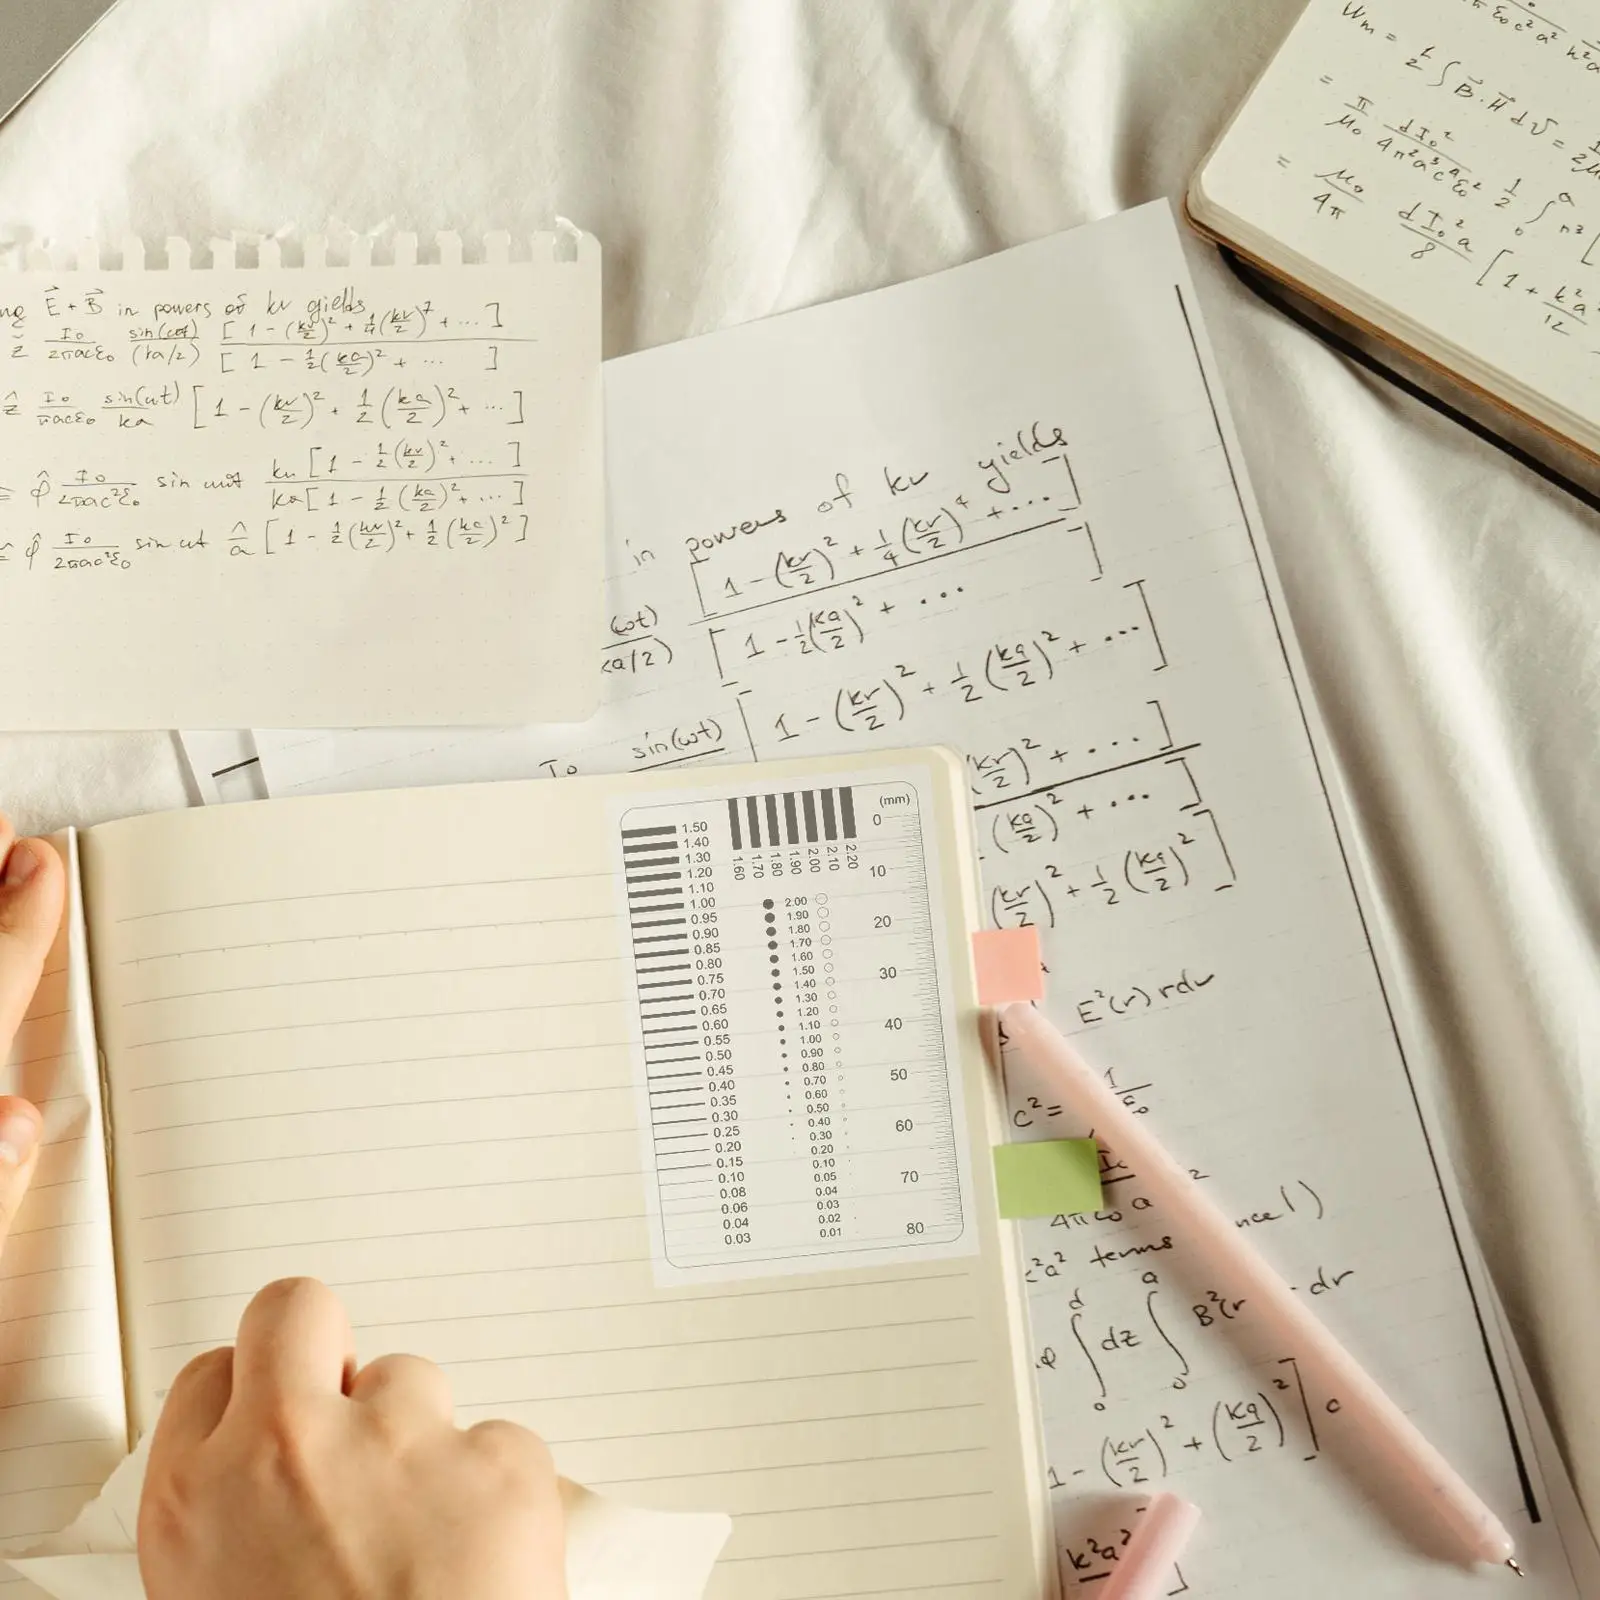 E⃗ + B⃗ in powers of kr yields
I₀/2πacε₀ sin(ωt)/(ka/2) [1 - (kr/2)² + 1/4(kr/2)⁴ + ...]/[1 - 1/2(ka/2)² + ... ]
ẑ I₀/πacε₀ sin(ωt)/ka [1 - (kr/2)² + 1/2(ka/2)² + ...]
φ̂ I₀/2πac²ε₀ sin ωt kr[1 - 1/2(kr/2)² + ...]/ka[1 - 1/2(ka/2)² + ...]
φ̂ I₀/2πac²ε₀ sin ωt [1 - 1/2(kr/2)² + 1/2(ka/2)²]
Wm = 1/2 ∫ B⃗ · H⃗ dv =
= π/μ₀
= μ₀/4π dI₀²a/8 [1 + k²a²/12
in powers of kr yields
[1 - (kr/2)² + 1/4(kr/2)⁴ + ...]
(ωt)/ka/2) [1 - 1/2(ka/2)² + ...]
I₀ sin(ωt) [1 - (kr/2)² + 1/2(ka/2)² + ...]
(kr/2)² + ...]
(ka/2)² + ...]
(kr/2)² + 1/2(ka/2)²]
E²(r) rdr
c² =
4πε₀a
²a² terms
∫₀ᵈ dz ∫₀ᵃ B²(r dr
1 - (kr/2)² + (ka/2)²]
k²a²
(mm)
0
10
20
30
40
50
60
70
80
1.60 1.70 1.80 1.90 2.00 2.10 2.20
1.50
1.40
1.30
1.20
1.10
1.00
0.95
0.90
0.85
0.80
0.75
0.70
0.65
0.60
0.55
0.50
0.45
0.40
0.35
0.30
0.25
0.20
0.15
0.10
0.08
0.06
0.04
0.03
2.00
1.90
1.80
1.70
1.60
1.50
1.40
1.30
1.20
1.10
1.00
0.90
0.80
0.70
0.60
0.50
0.40
0.30
0.20
0.10
0.05
0.04
0.03
0.02
0.01